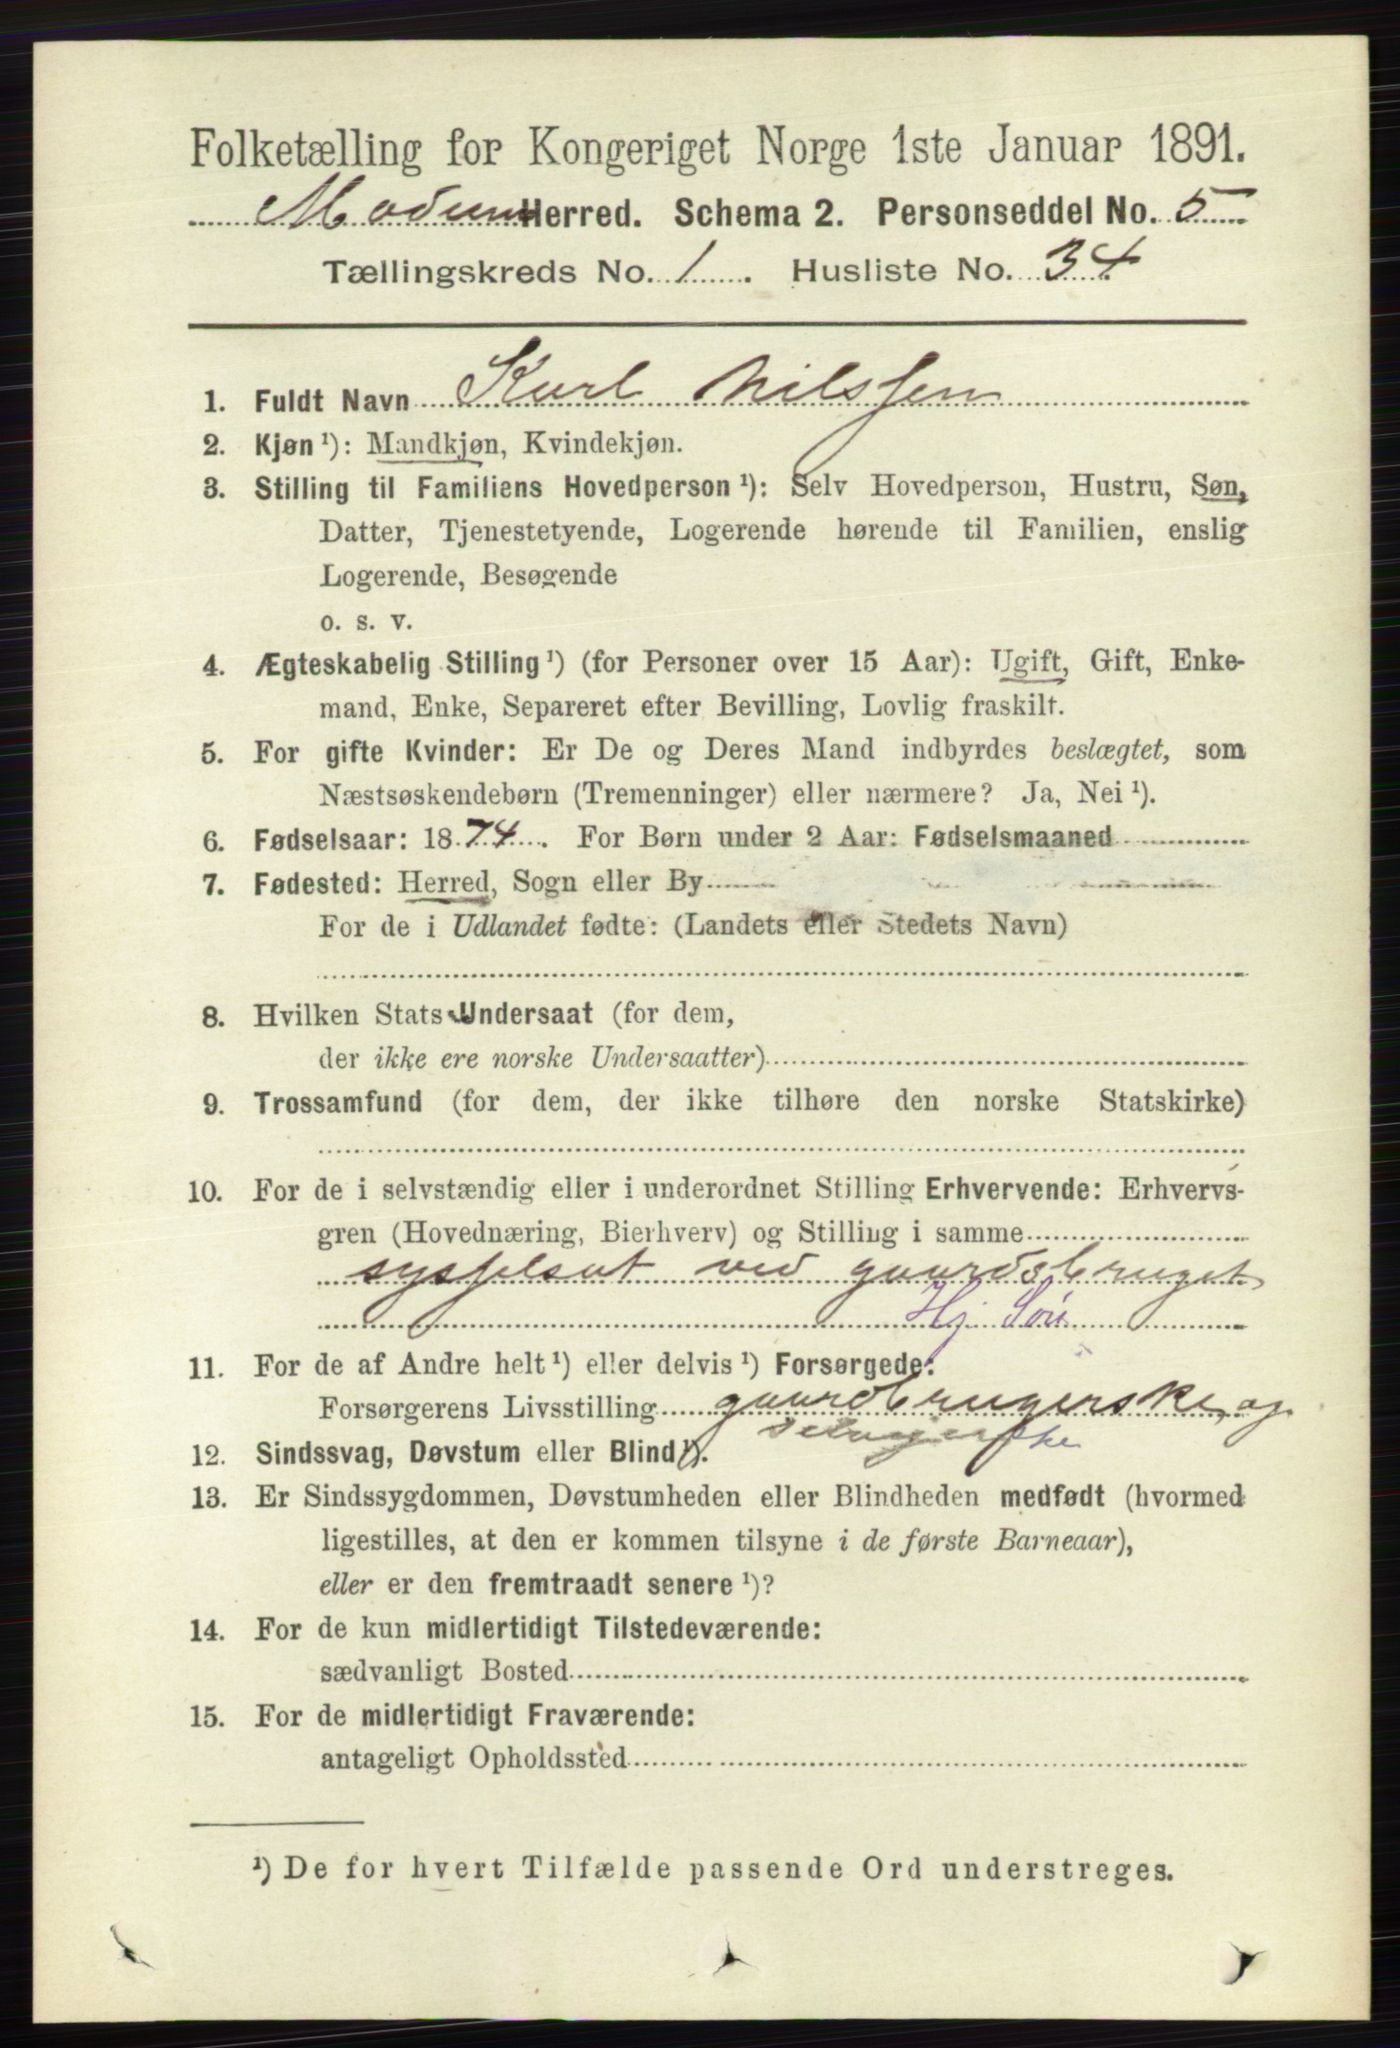 Folketælling for Kongeriget Norge 1ste Januar 1891.
Modum Herred. Schema 2. Personseddel No. 5
Tællingskreds No. 1. Husliste No. 34.
1. Fuldt Navn Karl Nilssen
2. Kjøn ¹): Mandkjøn, Kvindekjøn.
3. Stilling til Familiens Hovedperson ¹): Selv Hovedperson, Hustru, Søn,
Datter, Tjenestetyende, Logerende hørende til Familien, enslig
Logerende, Besøgende
o. s. v.
4. Ægteskabelig Stilling ¹) (for Personer over 15 Aar): Ugift, Gift, Enke-
mand, Enke, Separeret efter Bevilling, Lovlig fraskilt.
5. For gifte Kvinder: Er De og Deres Mand indbyrdes beslægtet, som
Næstsøskendebørn (Tremenninger) eller nærmere? Ja, Nei ¹).
6. Fødselsaar: 1874. For Børn under 2 Aar: Fødselsmaaned
7. Fødested: Herred, Sogn eller By
For de i Udlandet fødte: (Landets eller Stedets Navn)
8. Hvilken Stats Undersaat (for dem,
der ikke ere norske Undersaatter)
9. Trossamfund (for dem, der ikke tilhøre den norske Statskirke)
10. For de i selvstændig eller i underordnet Stilling Erhvervende: Erhvervs-
gren (Hovednæring, Bierhverv) og Stilling i samme
sysselsat ved gaardsbruget
Hj. Søn
11. For de af Andre helt ¹) eller delvis ¹) Forsørgede:
Forsørgerens Livsstilling gaardbrugerske og
selvejerske
12. Sindssvag, Døvstum eller Blind ¹).
13. Er Sindssygdommen, Døvstumheden eller Blindheden medfødt (hvormed
ligestilles, at den er kommen tilsyne i de første Barneaar),
eller er den fremtraadt senere ¹)?
14. For de kun midlertidigt Tilstedeværende:
sædvanligt Bosted
15. For de midlertidigt Fraværende:
antageligt Opholdssted
¹) De for hvert Tilfælde passende Ord understreges.